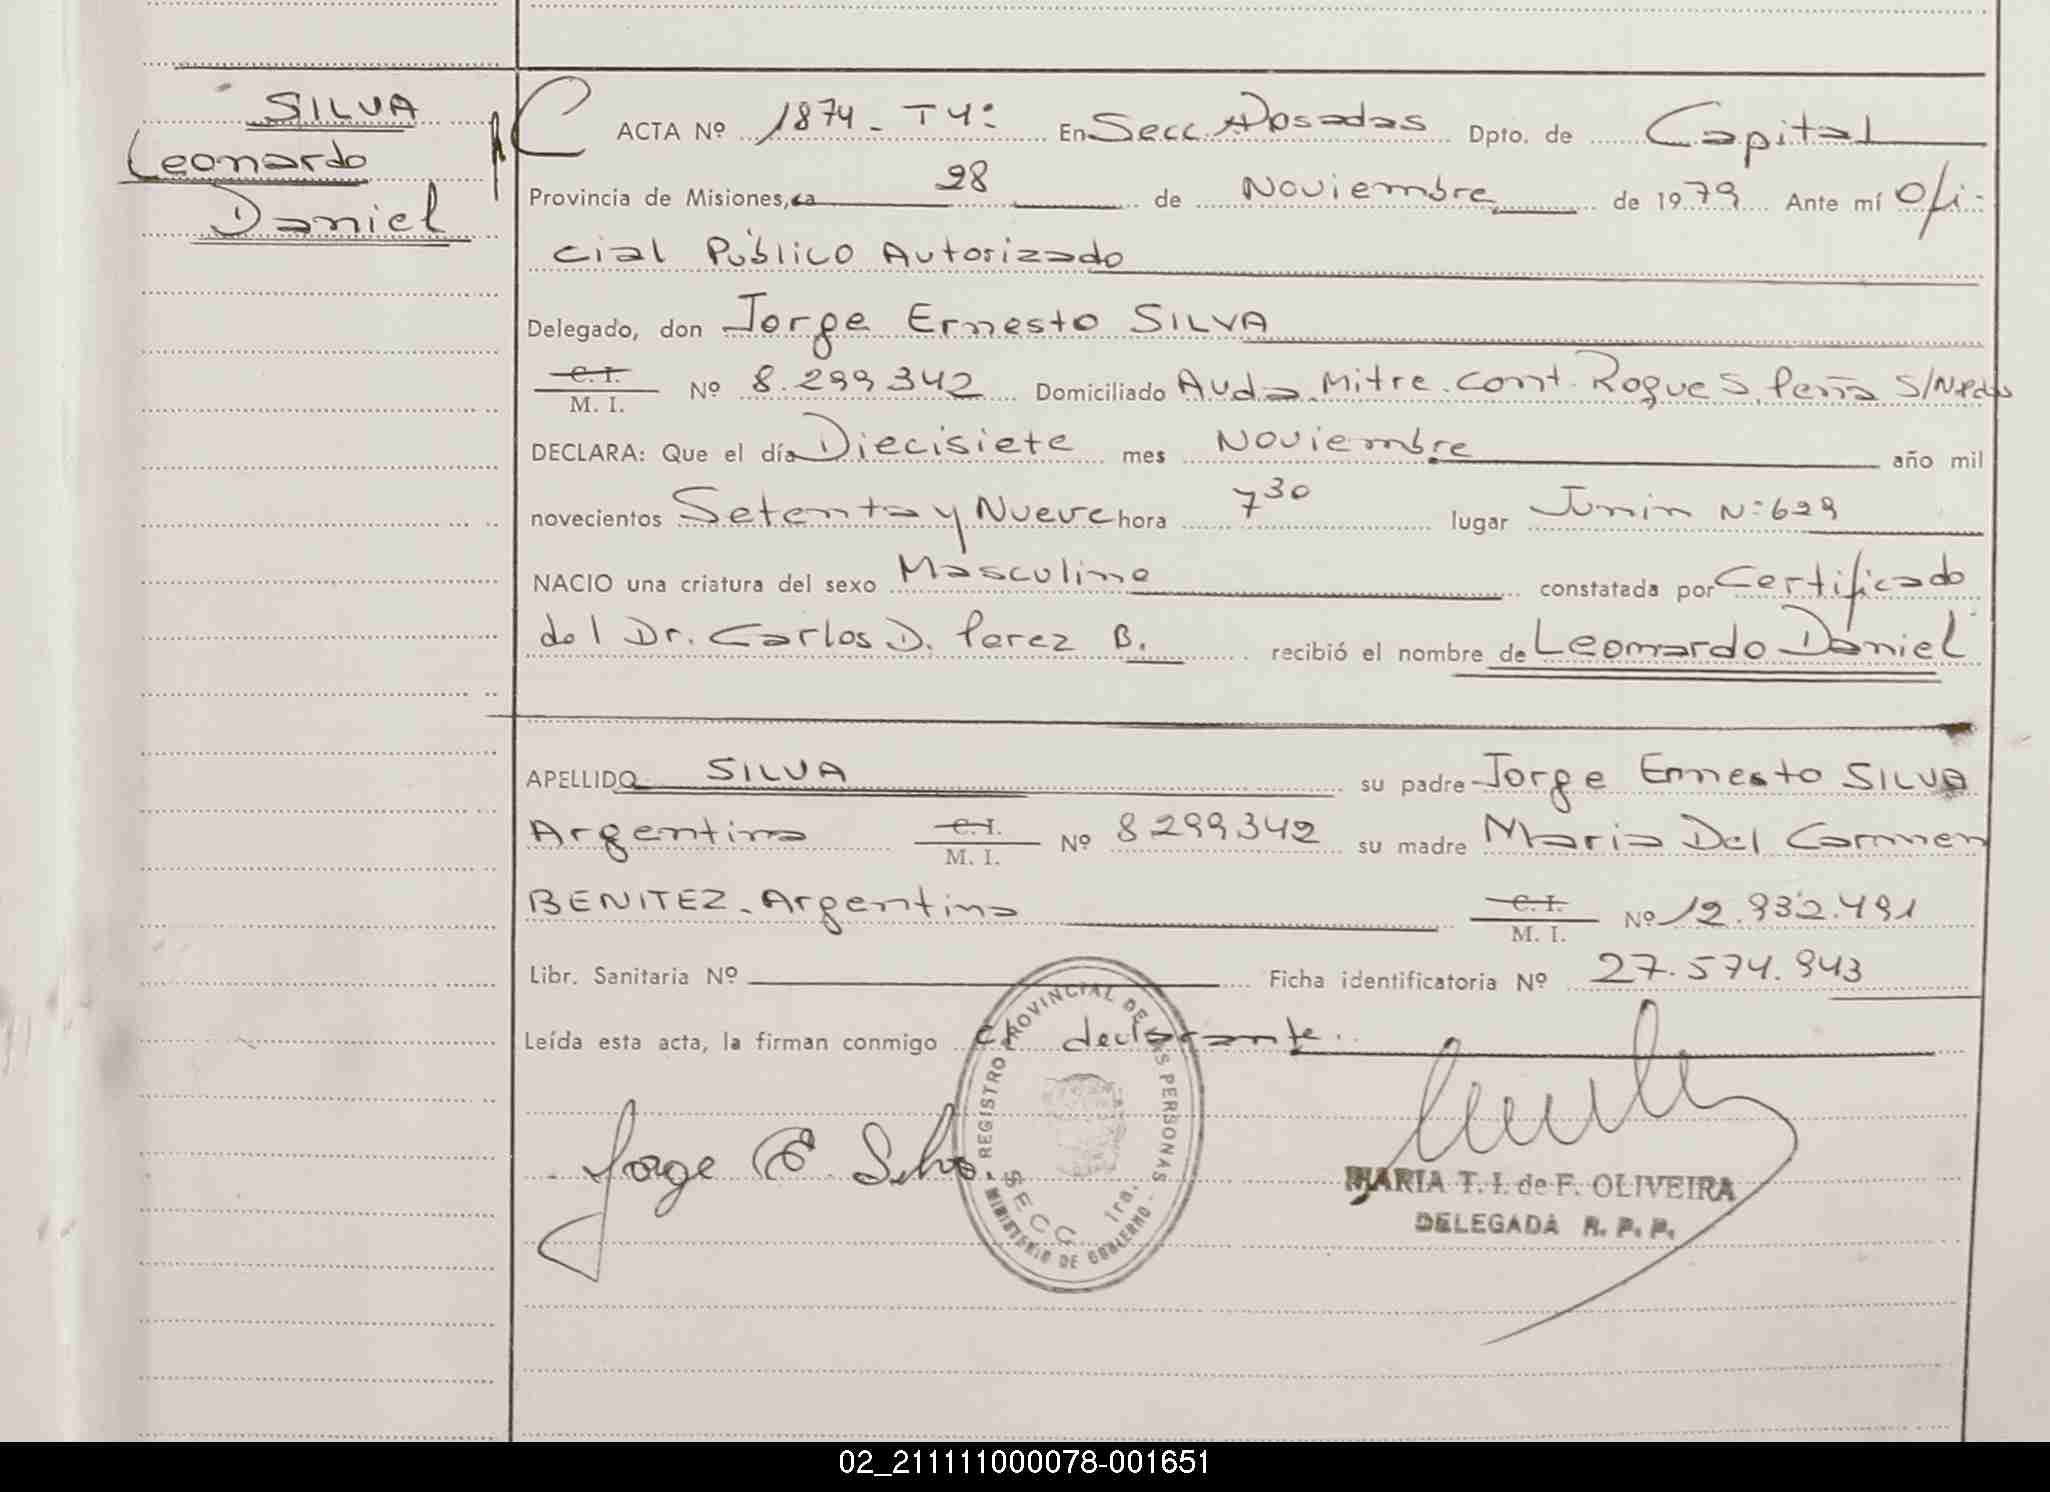 SILVA
Leonardo
Daniel
ACTA Nº 1874 - T4º En Secc. Posadas Dpto. de Capital
Provincia de Misiones, a 28 de Noviembre de 1979 Ante mí Ofi-
cial Público Autorizado
Delegado, don Jorge Ernesto SILVA
C. I.
M. I. Nº 8.299.342 Domiciliado Avda. Mitre. cont. Roque S. Peña S/N Pdas
DECLARA: Que el día Diecisiete mes Noviembre año mil
novecientos Setenta y Nueve hora 7 30 lugar Junin Nº 629
NACIO una criatura del sexo Masculino constatada por Certificado
del Dr. Carlos D. Perez B. recibió el nombre de Leonardo Daniel
APELLIDO SILVA su padre Jorge Ernesto SILVA
Argentino C. I. M. I. Nº 8299342 su madre Maria Del Carmen
BENITEZ - Argentina C. I. M. I. Nº 12.932.491
Libr. Sanitaria Nº Ficha identificatoria Nº 27.574.943
Leída esta acta, la firman conmigo el declarante.
Jorge E. Silva
REGISTRO PROVINCIAL DE LAS PERSONAS
SECC. 1ra.
MINISTERIO DE GOBIERNO
MARIA T. I. de F. OLIVEIRA
DELEGADA R. P. P.
02_211111000078-001651